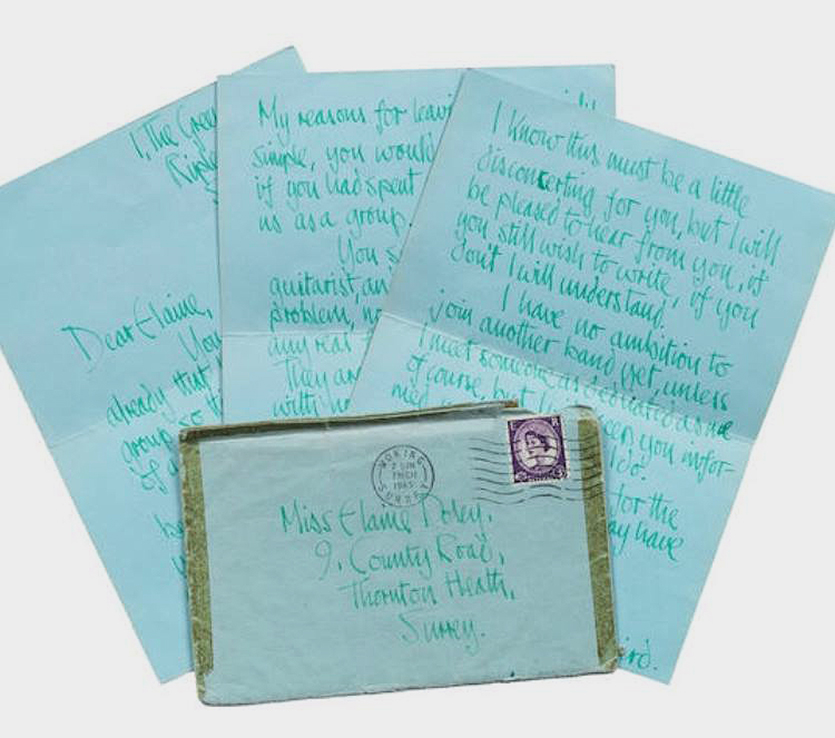 1, The Gree
Ripl
Dear Elaine,
You
already that
group, so
of a
My reasons for leavi
simple, you would
if you had spent
us as a group.
You s
guitarist, an
problem, no
any real
They are
with
I know this must be a little
disconcerting for you, but I will
be pleased to hear from you, if
you still wish to write, if you
don't I will understand.
I have no ambition to
join another band yet, unless
I meet someone as dedicated as me
of course, but keep you infor-
med
for the
ay have
ird.
WOKING
2 JUN
1965
SURREY
Miss Elaine Poley,
9, County Road,
Thornton Heath,
Surrey.